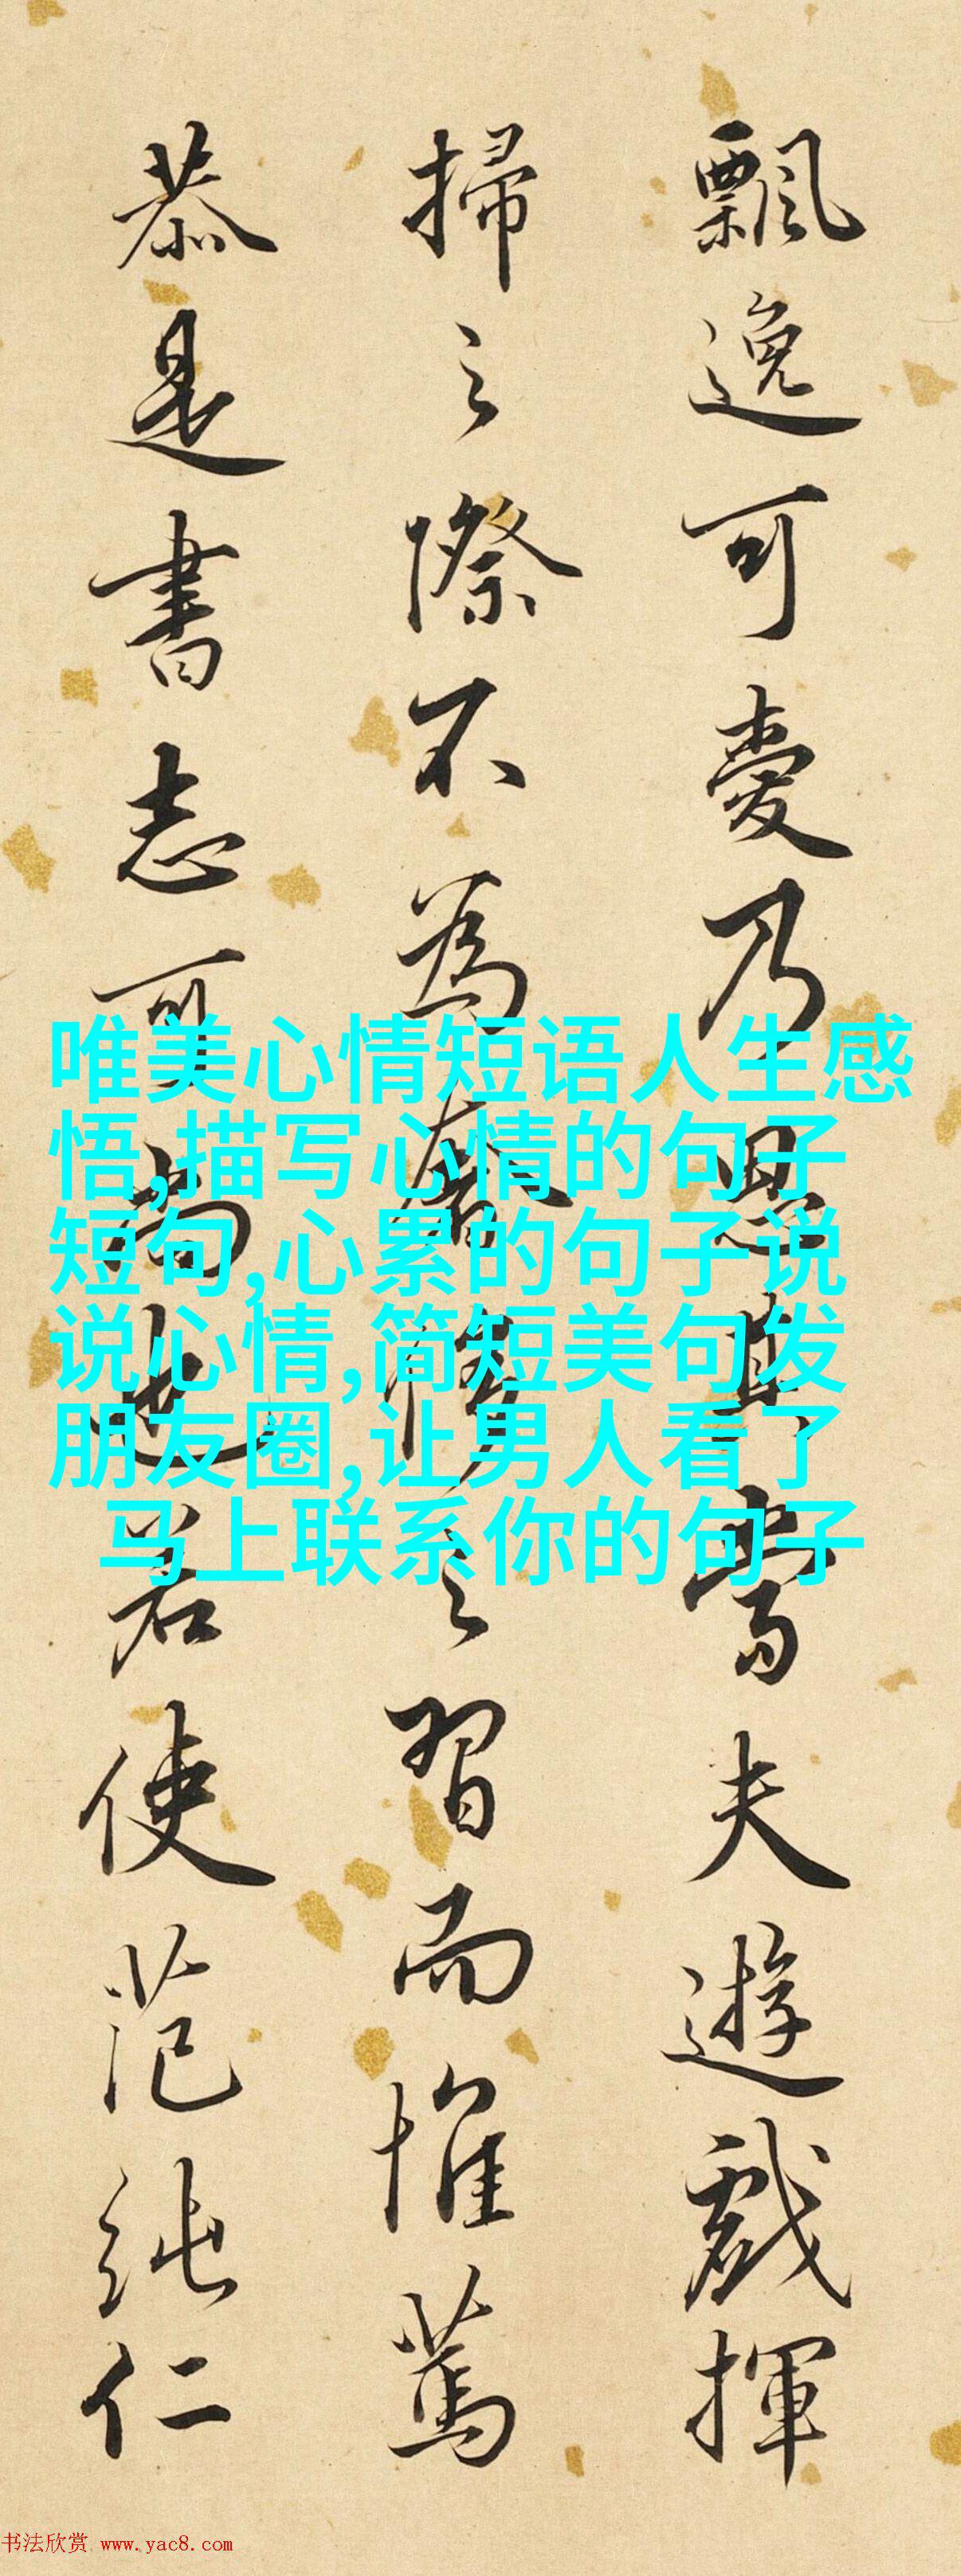 飄逸可愛乃思其當夫遊戲揮
掃之際不為之習而惟篤
恭是書志可尚也若使范純仁
唯美心情短语人生感
悟,描写心情的句子
短句,心累的句子说
说心情,简短美句发
朋友圈,让男人看了
马上联系你的句子
书法欣赏 www.yac8.com